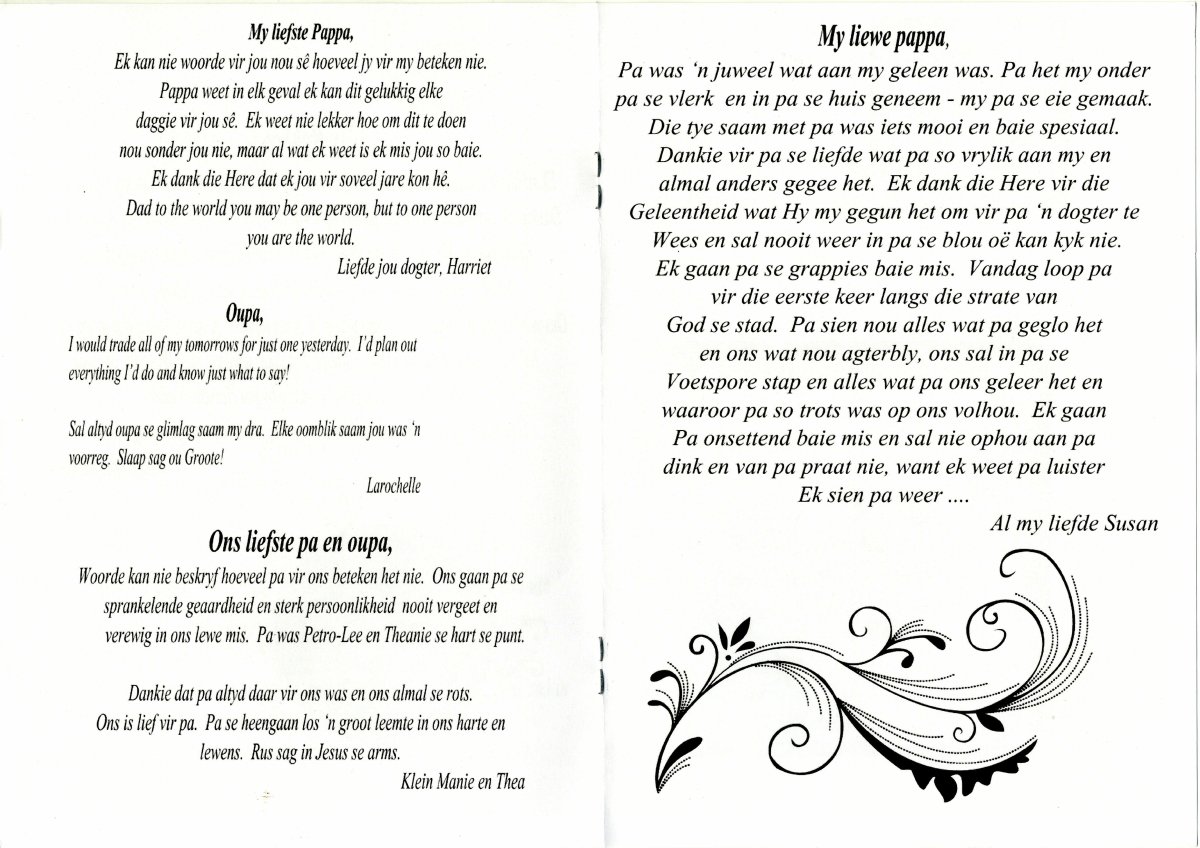 My liefste Pappa,
Ek kan nie woorde vir jou nou sê hoeveel jy vir my beteken nie.
Pappa weet in elk geval ek kan dit gelukkig elke
daggie vir jou sê.  Ek weet nie lekker hoe om dit te doen
nou sonder jou nie, maar al wat ek weet is ek mis jou so baie.
Ek dank die Here dat ek jou vir soveel jare kon hê.
Dad to the world you may be one person, but to one person
you are the world.
Liefde jou dogter, Harriet
Oupa,
I would trade all of my tomorrows for just one yesterday.  I’d plan out
everything I’d do and know just what to say!
Sal altyd oupa se glimlag saam my dra.  Elke oomblik saam jou was ‘n
voorreg.  Slaap sag ou Groote!
Larochelle
Ons liefste pa en oupa,
Woorde kan nie beskryf hoeveel pa vir ons beteken het nie.  Ons gaan pa se
sprankelende geaardheid en sterk persoonlikheid  nooit vergeet en
verewig in ons lewe mis.  Pa was Petro-Lee en Theanie se hart se punt.
Dankie dat pa altyd daar vir ons was en ons almal se rots.
Ons is lief vir pa.  Pa se heengaan los ‘n groot leemte in ons harte en
lewens.  Rus sag in Jesus se arms.
Klein Manie en Thea
My liewe pappa,
Pa was ‘n juweel wat aan my geleen was. Pa het my onder
pa se vlerk  en in pa se huis geneem - my pa se eie gemaak.
Die tye saam met pa was iets mooi en baie spesiaal.
Dankie vir pa se liefde wat pa so vrylik aan my en
almal anders gegee het.  Ek dank die Here vir die
Geleentheid wat Hy my gegun het om vir pa ‘n dogter te
Wees en sal nooit weer in pa se blou oë kan kyk nie.
Ek gaan pa se grappies baie mis.  Vandag loop pa
vir die eerste keer langs die strate van
God se stad.  Pa sien nou alles wat pa geglo het
en ons wat nou agterbly, ons sal in pa se
Voetspore stap en alles wat pa ons geleer het en
waaroor pa so trots was op ons volhou.  Ek gaan
Pa onsettend baie mis en sal nie ophou aan pa
dink en van pa praat nie, want ek weet pa luister
Ek sien pa weer ....
Al my liefde Susan